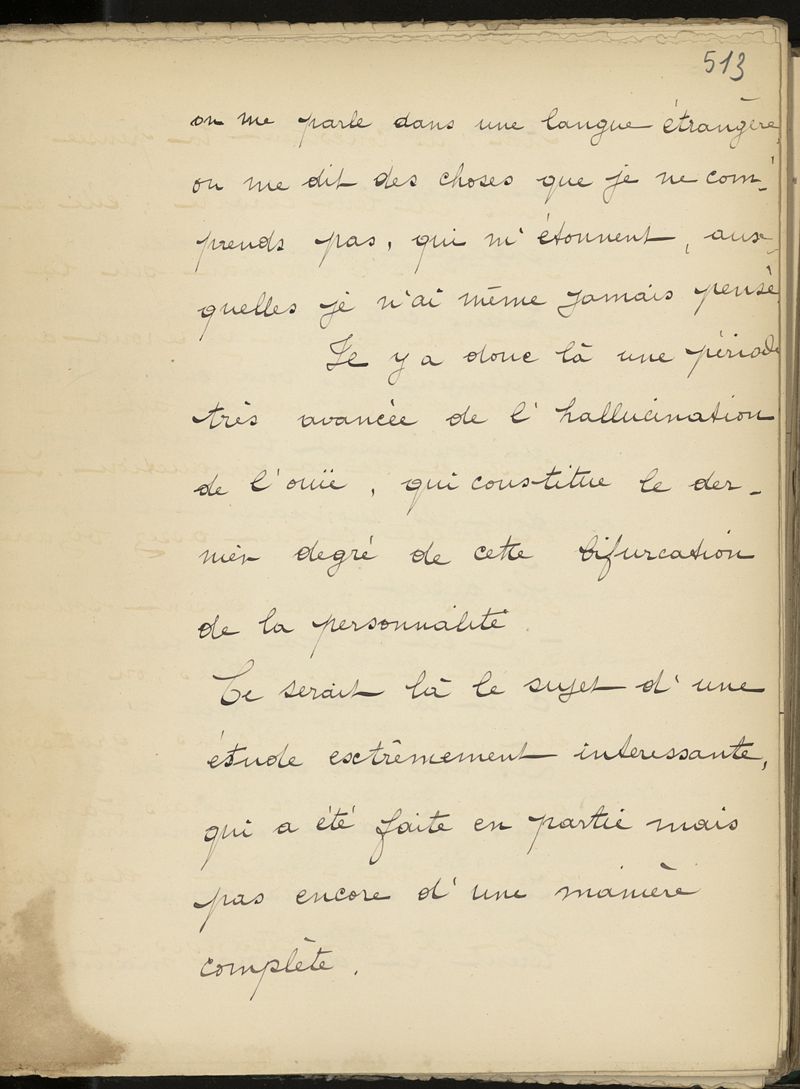 513
on me parle dans une langue étrangère,
on me dit des choses que je ne com-
prends pas, qui m'étonnent, aux-
quelles je n'ai même jamais pensé
Il y a donc là une période
très avancée de l'hallucination
de l'ouïe, qui constitue le der-
nier degré de cette bifurcation
de la personnalité.
Ce serait là le sujet d'une
étude extrêmement interessante,
qui a été faite en partie mais
pas encore d'une manière
complète.